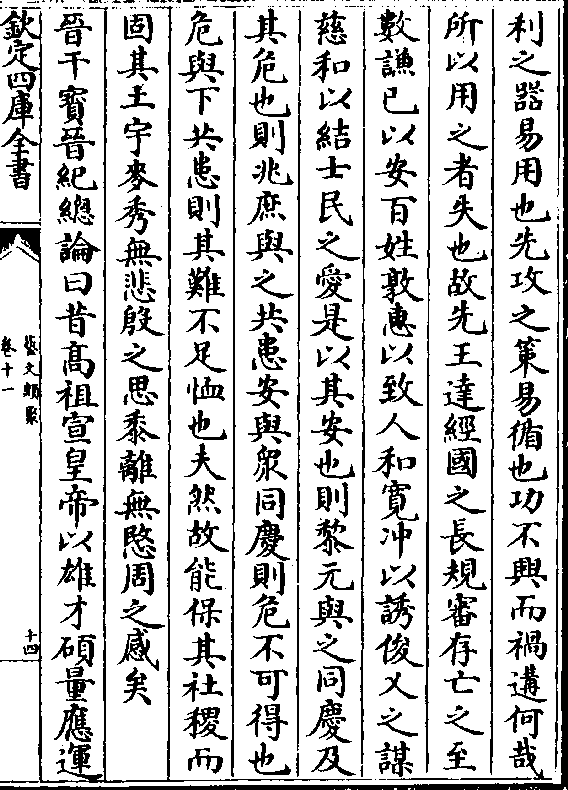 利之器易用也先攻之策易循也功不興而禍遘何哉
所以用之者失也故先王達經國之長規審存亡之至
數謙已以安百姓敦惠以致人和寛冲以誘俊乂之謀
慈和以結士民之愛是以其安也則黎元與之同慶及
其危也則兆庶與之共患安與衆同慶則危不可得也
危與下共患則其難不足恤也夫然故能保其社稷而
固其王宇麥秀無悲殷之思黍離無愍周之感矣
晉干寳晉紀總論曰昔髙祖宣皇帝以雄才碩量應運
欽定四庫全書
藝文類聚
卷十一
十四